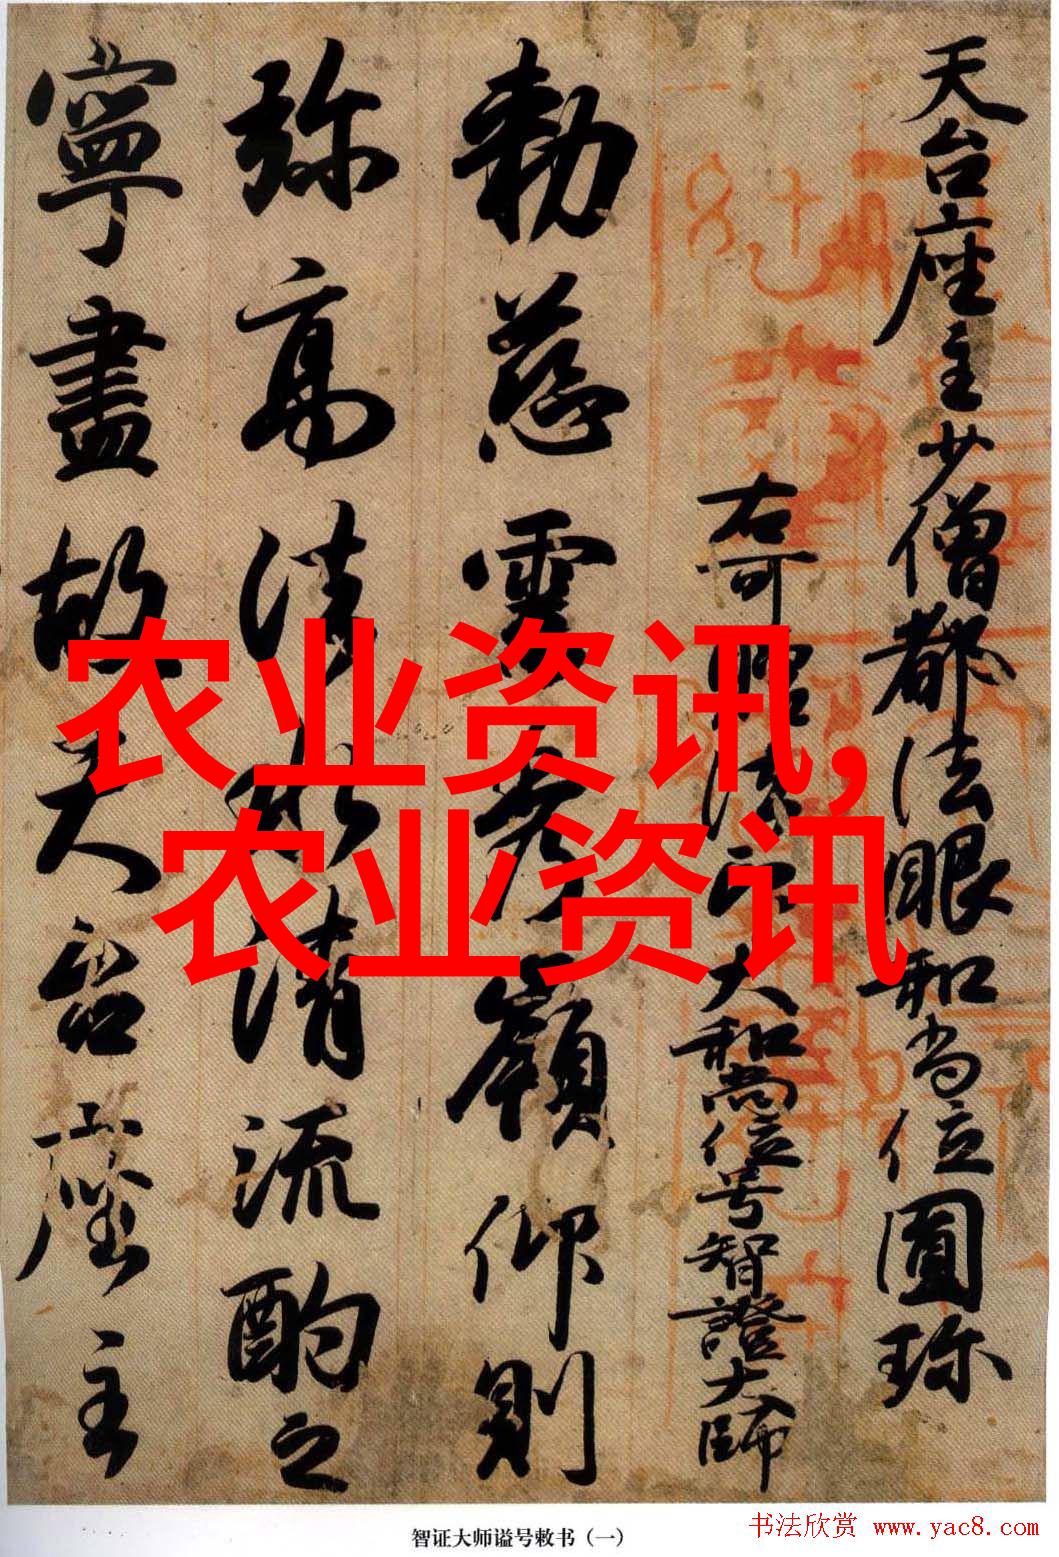 天台座主少僧都法眼和尚位圓珍
右可贈法印大和尚位号智證大師
勅慈雲秀嶺仰則
弥高法水清流酌之
寧盡故天台座主
农业资讯,
农业资讯
智证大师谥号敕书（一）
书法欣赏 www.yac8.com